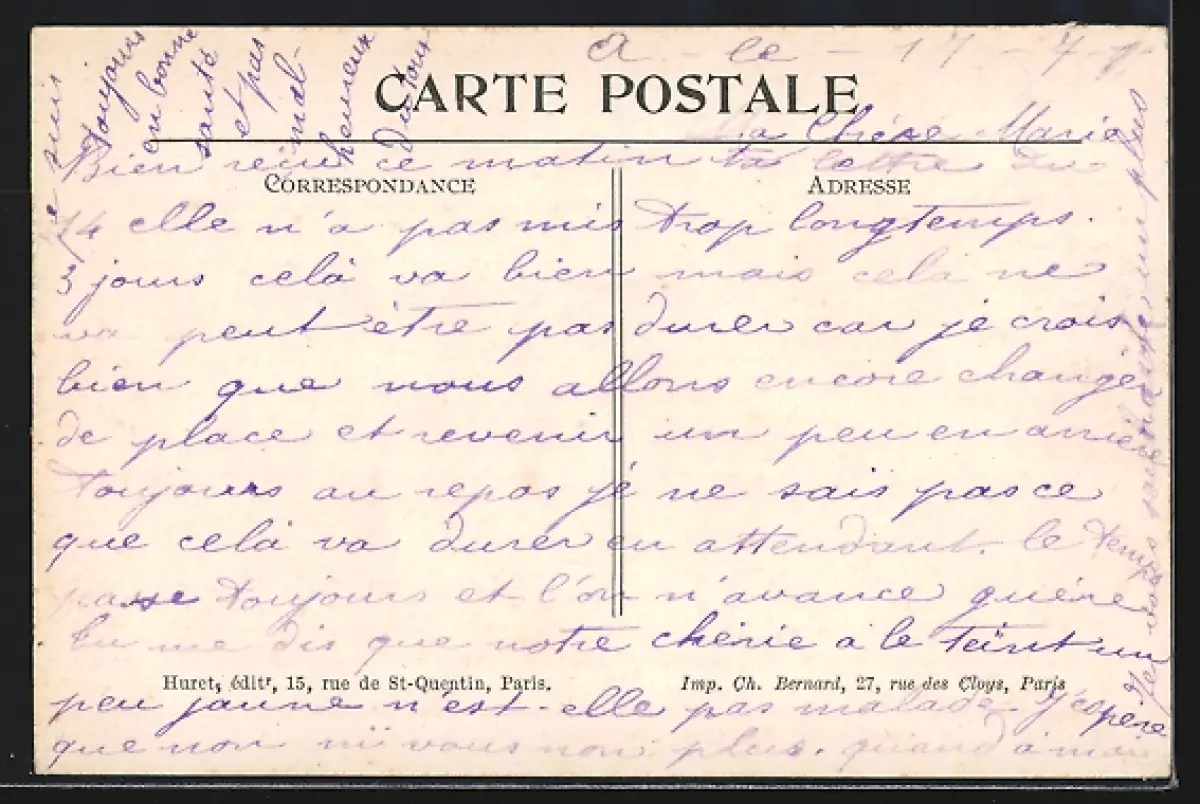 A - le - 17 - 7 -
CARTE POSTALE
Ma Chére Marie
Bien reçu ce matin ta lettre du
CORRESPONDANCE
ADRESSE
14 elle n'a pas mis trop longtemps.
3 jours celà va bien mais celà ne
va peut être pas durer car je crois
bien que nous allons encore changé
de place et revenir un peu en arriére
Toujours au repos je ne sais pas ce
que celà va durer en attendant le temps
passe toujours et l'on n'avance guére
tu me dis que notre chérie a le teint un
Huret, éditr, 15, rue de St-Quentin, Paris.
Imp. Ch. Bernard, 27, rue des Cloys, Paris
peu jaune n'est-elle pas malade j'éspére
que non ni vous non plus. quand à moi
je suis
toujours
en bonne
santé
et pas
mal-
heureux
du tout
Je vous un plus